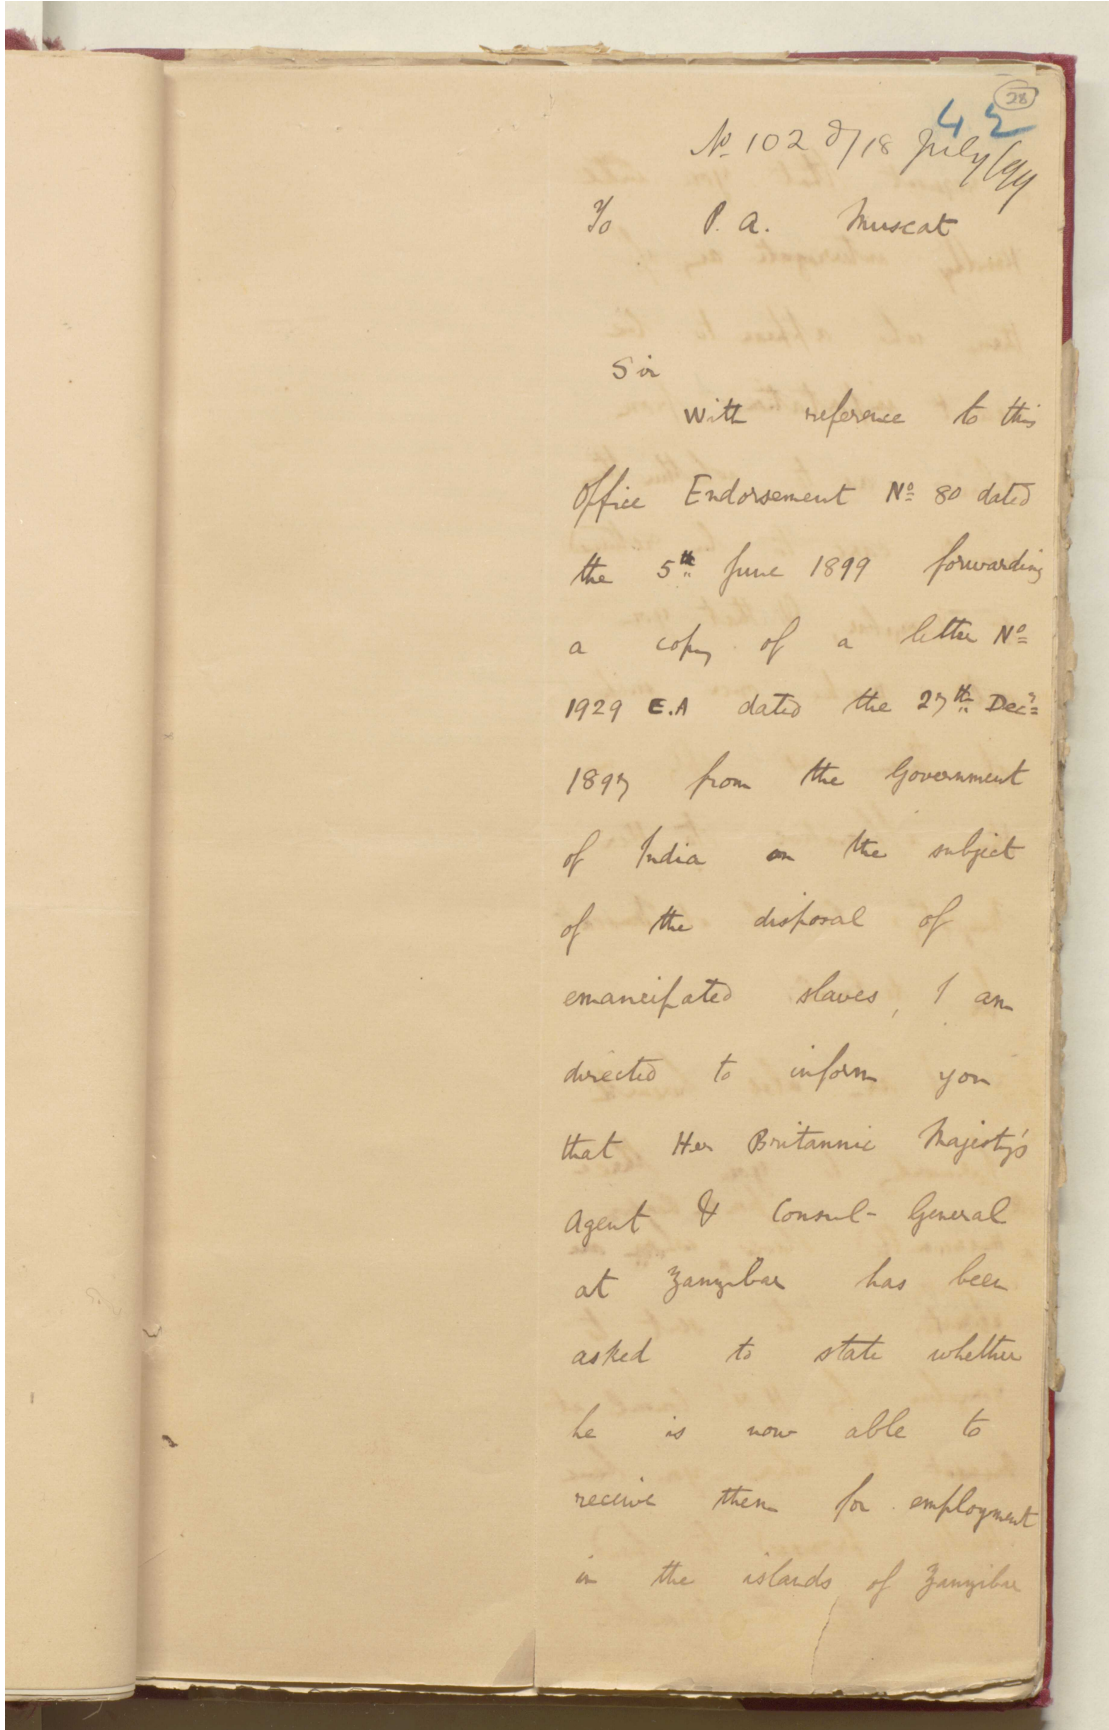 28
42
No 102 d/18 July/99
To P. A. Muscat
Sir
With reference to this
Office Endorsement No 80 dated
the 5th June 1899 forwarding
a copy of a letter No
1929 E.A dated the 27th Decr
1897 from the Government
of India on the subject
of the disposal of
emancipated slaves, I am
directed to inform you
that Her Britannic Majesty's
Agent & Consul-General
at Zanzibar has been
asked to state whether
he is now able to
receive them for employment
in the islands of Zanzibar